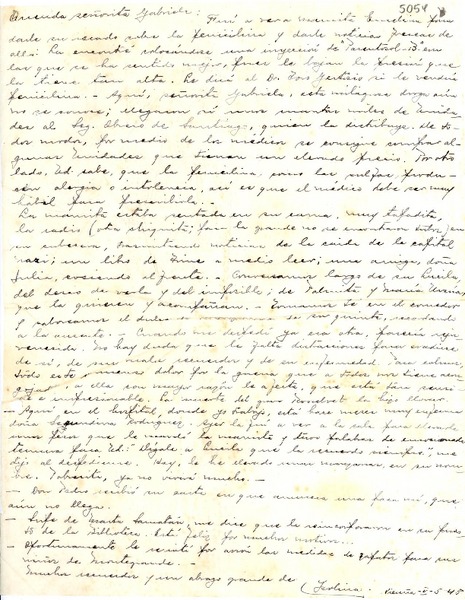 5054
Querida señorita Gabriela: Fuí a ver a mamita Emelina para
darle su recado sobre la penicilina y darle noticias frescas de
allá. La encontré colocándose una inyección de Parentrol-B en
las que se ha sentido mejor, pues le bajan la presión que
la tiene tan alta. Le diré al Dr. si le vendría
penicilina. - Aquí, señorita Gabriela, esta milagrosa droga aún
no se conoce; llegaron no unos cuantos miles de Unida-
des al Seg. Obrero de Santiago, quien la distribuye. De to-
dos modos, por medio de los médicos se consigue comprar al-
gunas Unidades que tienen un elevado precio. Por otro
lado, Ud. sabe, que la penicilina, como las sulfas, produ-
cen alergia o intolerancia, así es que el médico debe ser muy
hábil para prescribirla. -
La mamita estaba sentada en su cama, muy tapadita,
la radio (otra chiquita; para la grande no se encontraron tubos) en
su cabecera, transmitiendo noticias de la caída de la capital
nazi; un libro de a medio leer; una amiga, doña
Julia, cosiendo al frente. - Conversamos largo de su Lucila,
del deseo de verla y del imposible; de Palmita y María Urzúa
que la quieren y acompañan. - Tomamos té en el comedor
y saboreamos el dulce de su quinta, recordando
a la ausente. - Cuando me despedí ya era otra, parecía reju-
venecida. No hay duda que le falta distracciones para evadirse
de sí, de sus malos recuerdos y de su enfermedad.
Todo este inmenso dolor por la guerra que a todos nos tiene aho-
gados, a ella con mayor razón le afecta, que está tan sensi-
ble e impresionable. La muerte del gran Roosevelt la hizo llorar.
- Aquí en el hospital, donde yo trabajo, está hace meses muy enferma
doña Segundina Rodríguez. Ayer la fuí a ver a la sala para llevarle
unos pesos que le mandó la mamita y tuvo palabras de emocionada
ternura para Ud.: "Dígale a Lucila que la recuerdo siempre", me
dijo al despedirme. Hoy, le he llevado unas manzanas, en su nom-
bre. Pobrecita, ya no vivirá mucho. -
- Don Pedro recibió su carta en que anuncia una para mí, que
aún no llega.
- Supe de Marta Samatán; me dice que la reincorporaron en su pues-
to de la Biblioteca. Está feliz por muchos motivos. -
- Oportunamente le escribí por avión las medidas de zapatos para los
niños de Montegrande. -
Muchos recuerdos y un abrazo grande de
(Isolina. - Vicuña - V - 5 - 45